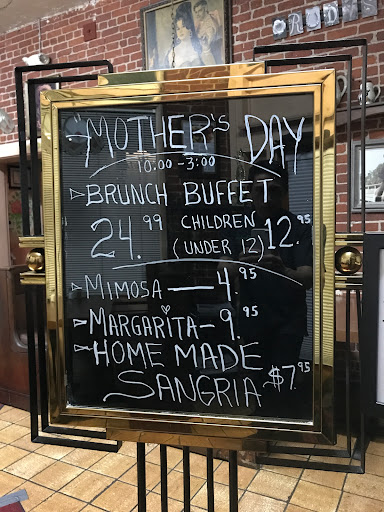 "MOTHER'S DAY
10:00 - 3:00
▷BRUNCH BUFFET
24.99 CHILDREN (UNDER 12) 12.95
▷MIMOSA — 4.95
▷MARGARITA - 9.95
▷HOME MADE
SANGRIA $7.95